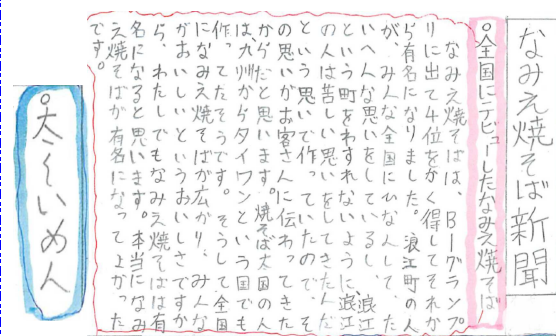 なみえ焼そば新聞
○全国にデビューしたなみえ焼そば
なみえ焼そばは、B一グランプ
リに出て4位をかく得してそれか
ら有名になりました。浪江町の人
が、みんな全国にひなんして、た
いへんな思いをしているし、浪江
という町をわすれないように、浪江
の人は苦しい思いをしてきたんだ
という思いで作っていたのでそ
の思いがお客さんに伝わってきた
からだと思います。焼そば太国の人
は、九州からタイワンという国でも
作ってたそうです。そうして全国
になみえ焼そばが広がり、みんな
がおいしいというおいしさですか
ら、わたしでもなみえ焼そばは有
名になると思います。本当になみ
え焼そばが有名になってよかった
です。
○太くいめん